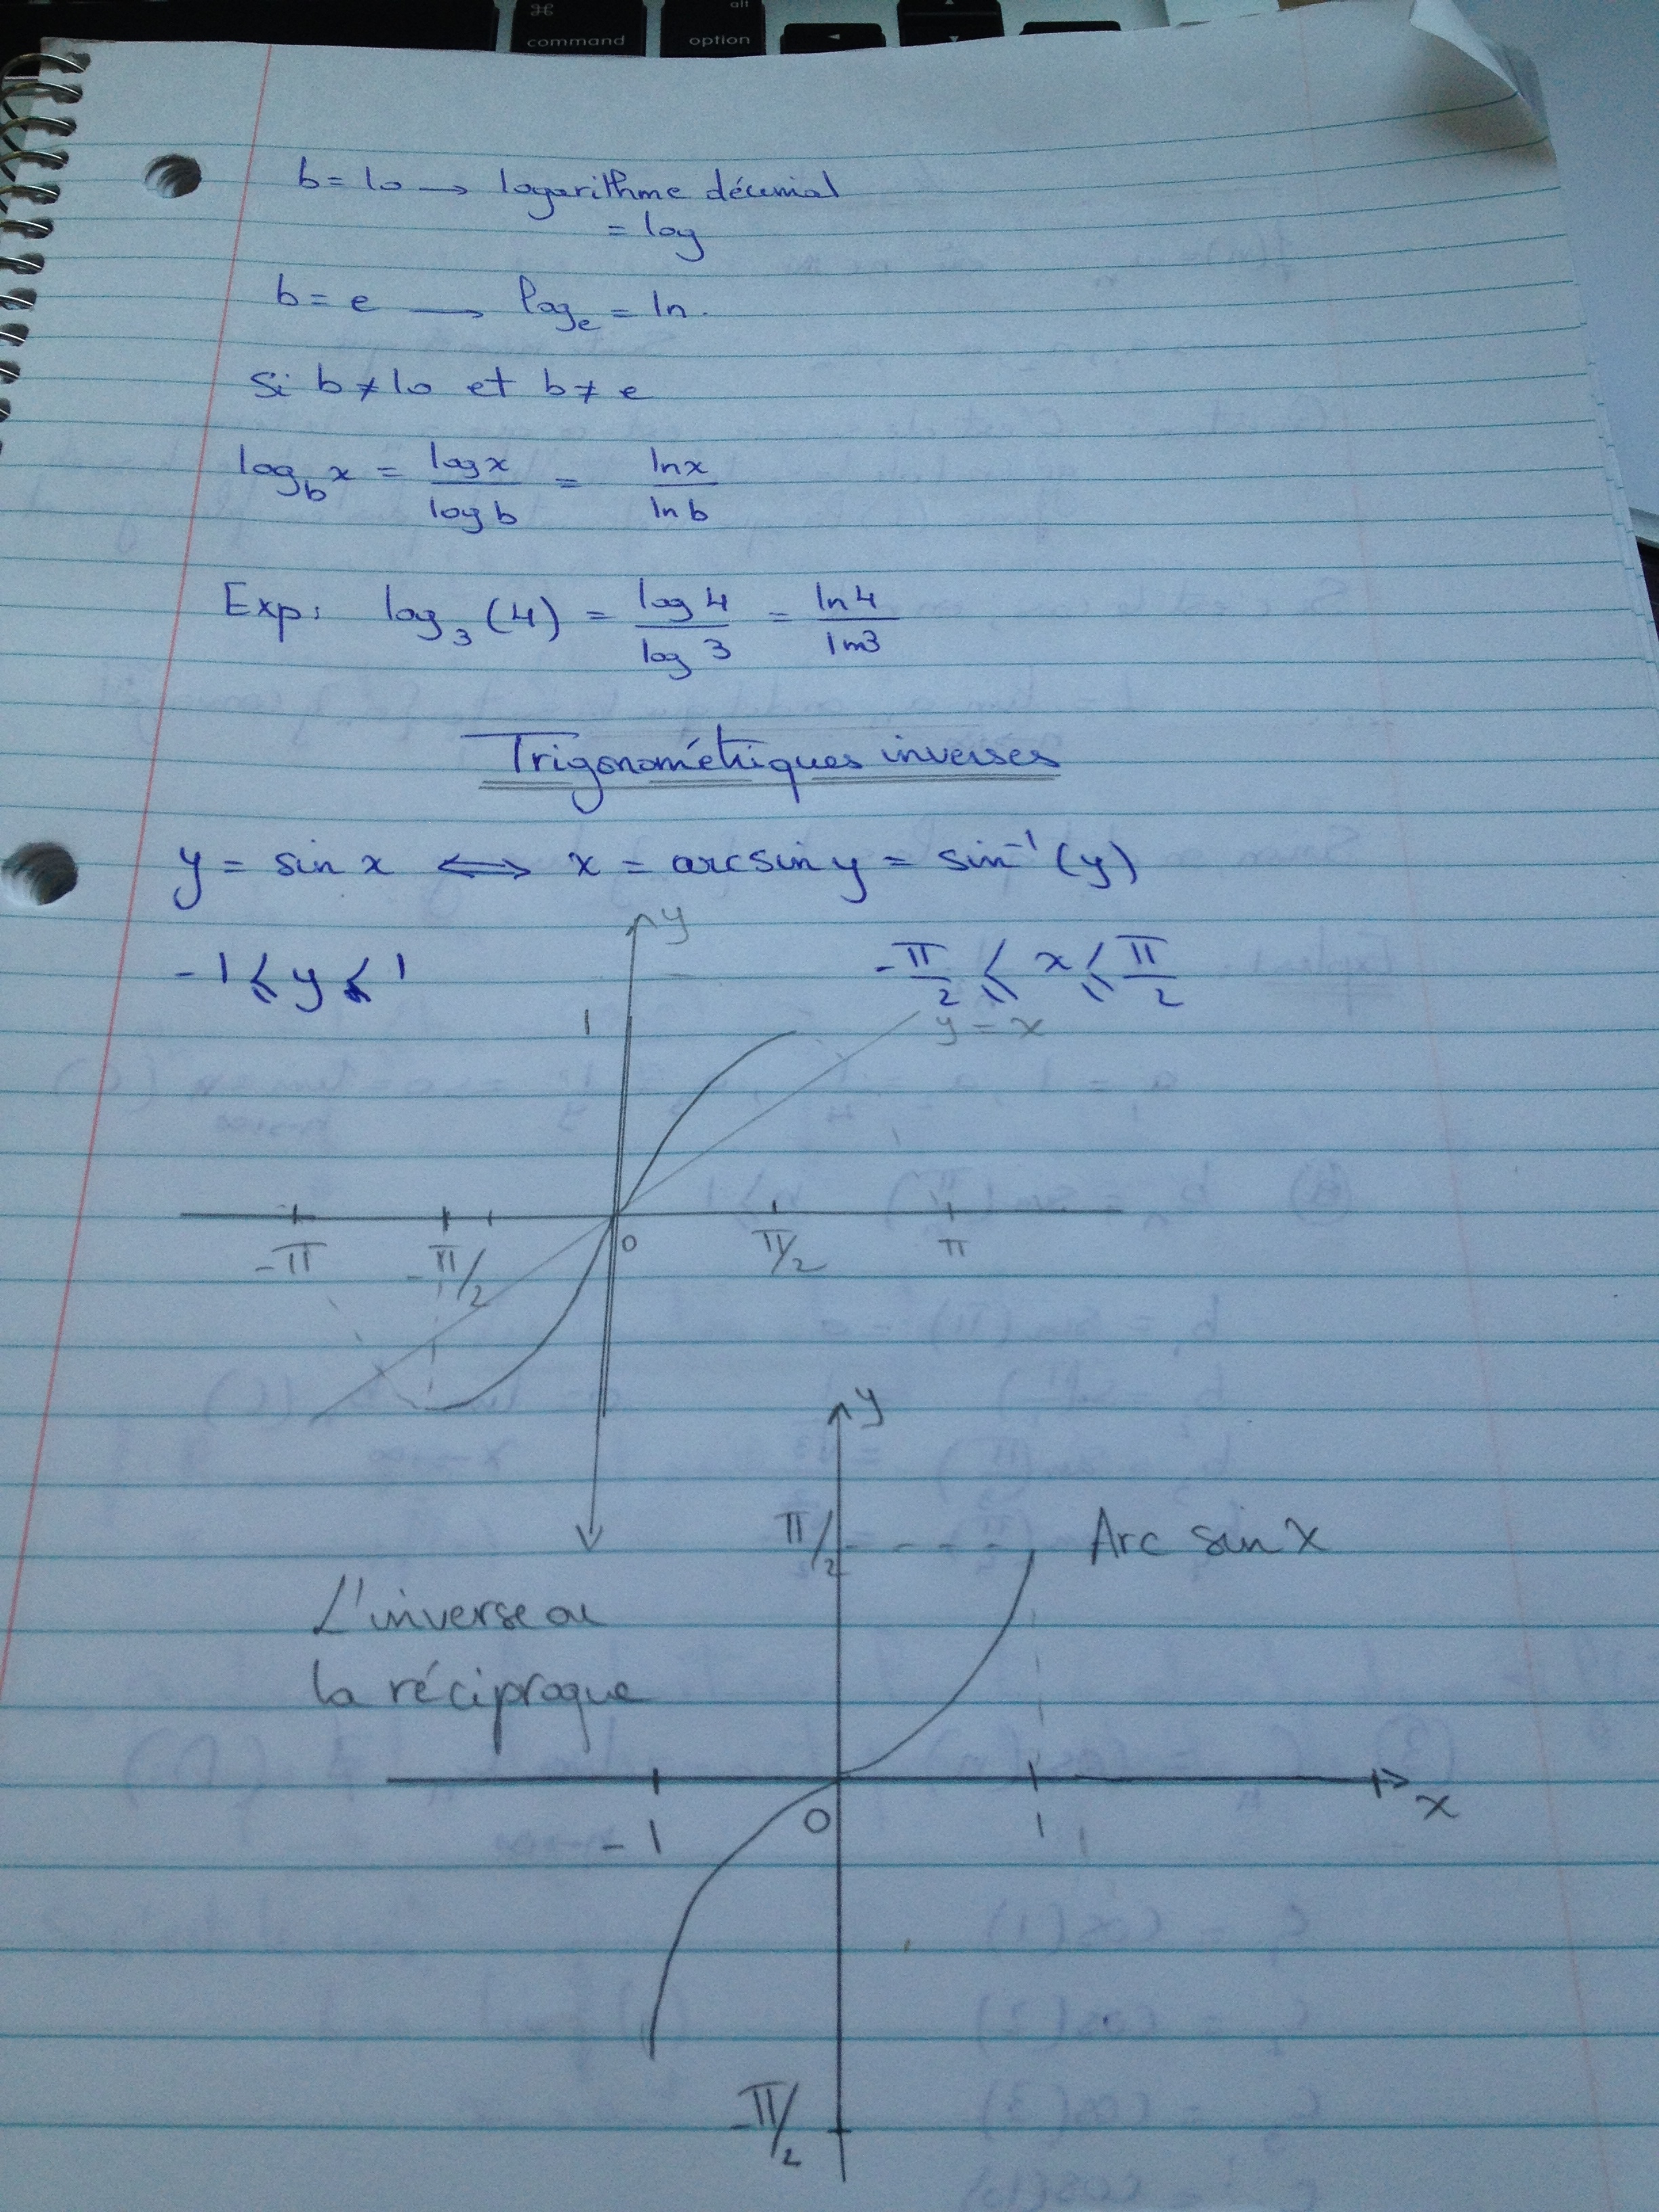 command
alt
option
b = 10 → logarithme décimal
= log
b = e → log_e = ln.
Si b ≠ 10 et b ≠ e
log_b x = log x / log b = ln x / ln b
Exp: log_3 (4) = log 4 / log 3 = ln 4 / ln 3
Trigonométriques inverses
y = sin x ⟺ x = arcsin y = sin⁻¹ (y)
-1 ≤ y ≤ 1
-π/2 ≤ x ≤ π/2
y
1
y = x
-π -π/2 0 π/2 π
y
π/2
Arc sin x
L'inverse ou
la réciproque
-1 0 1 x
-π/2